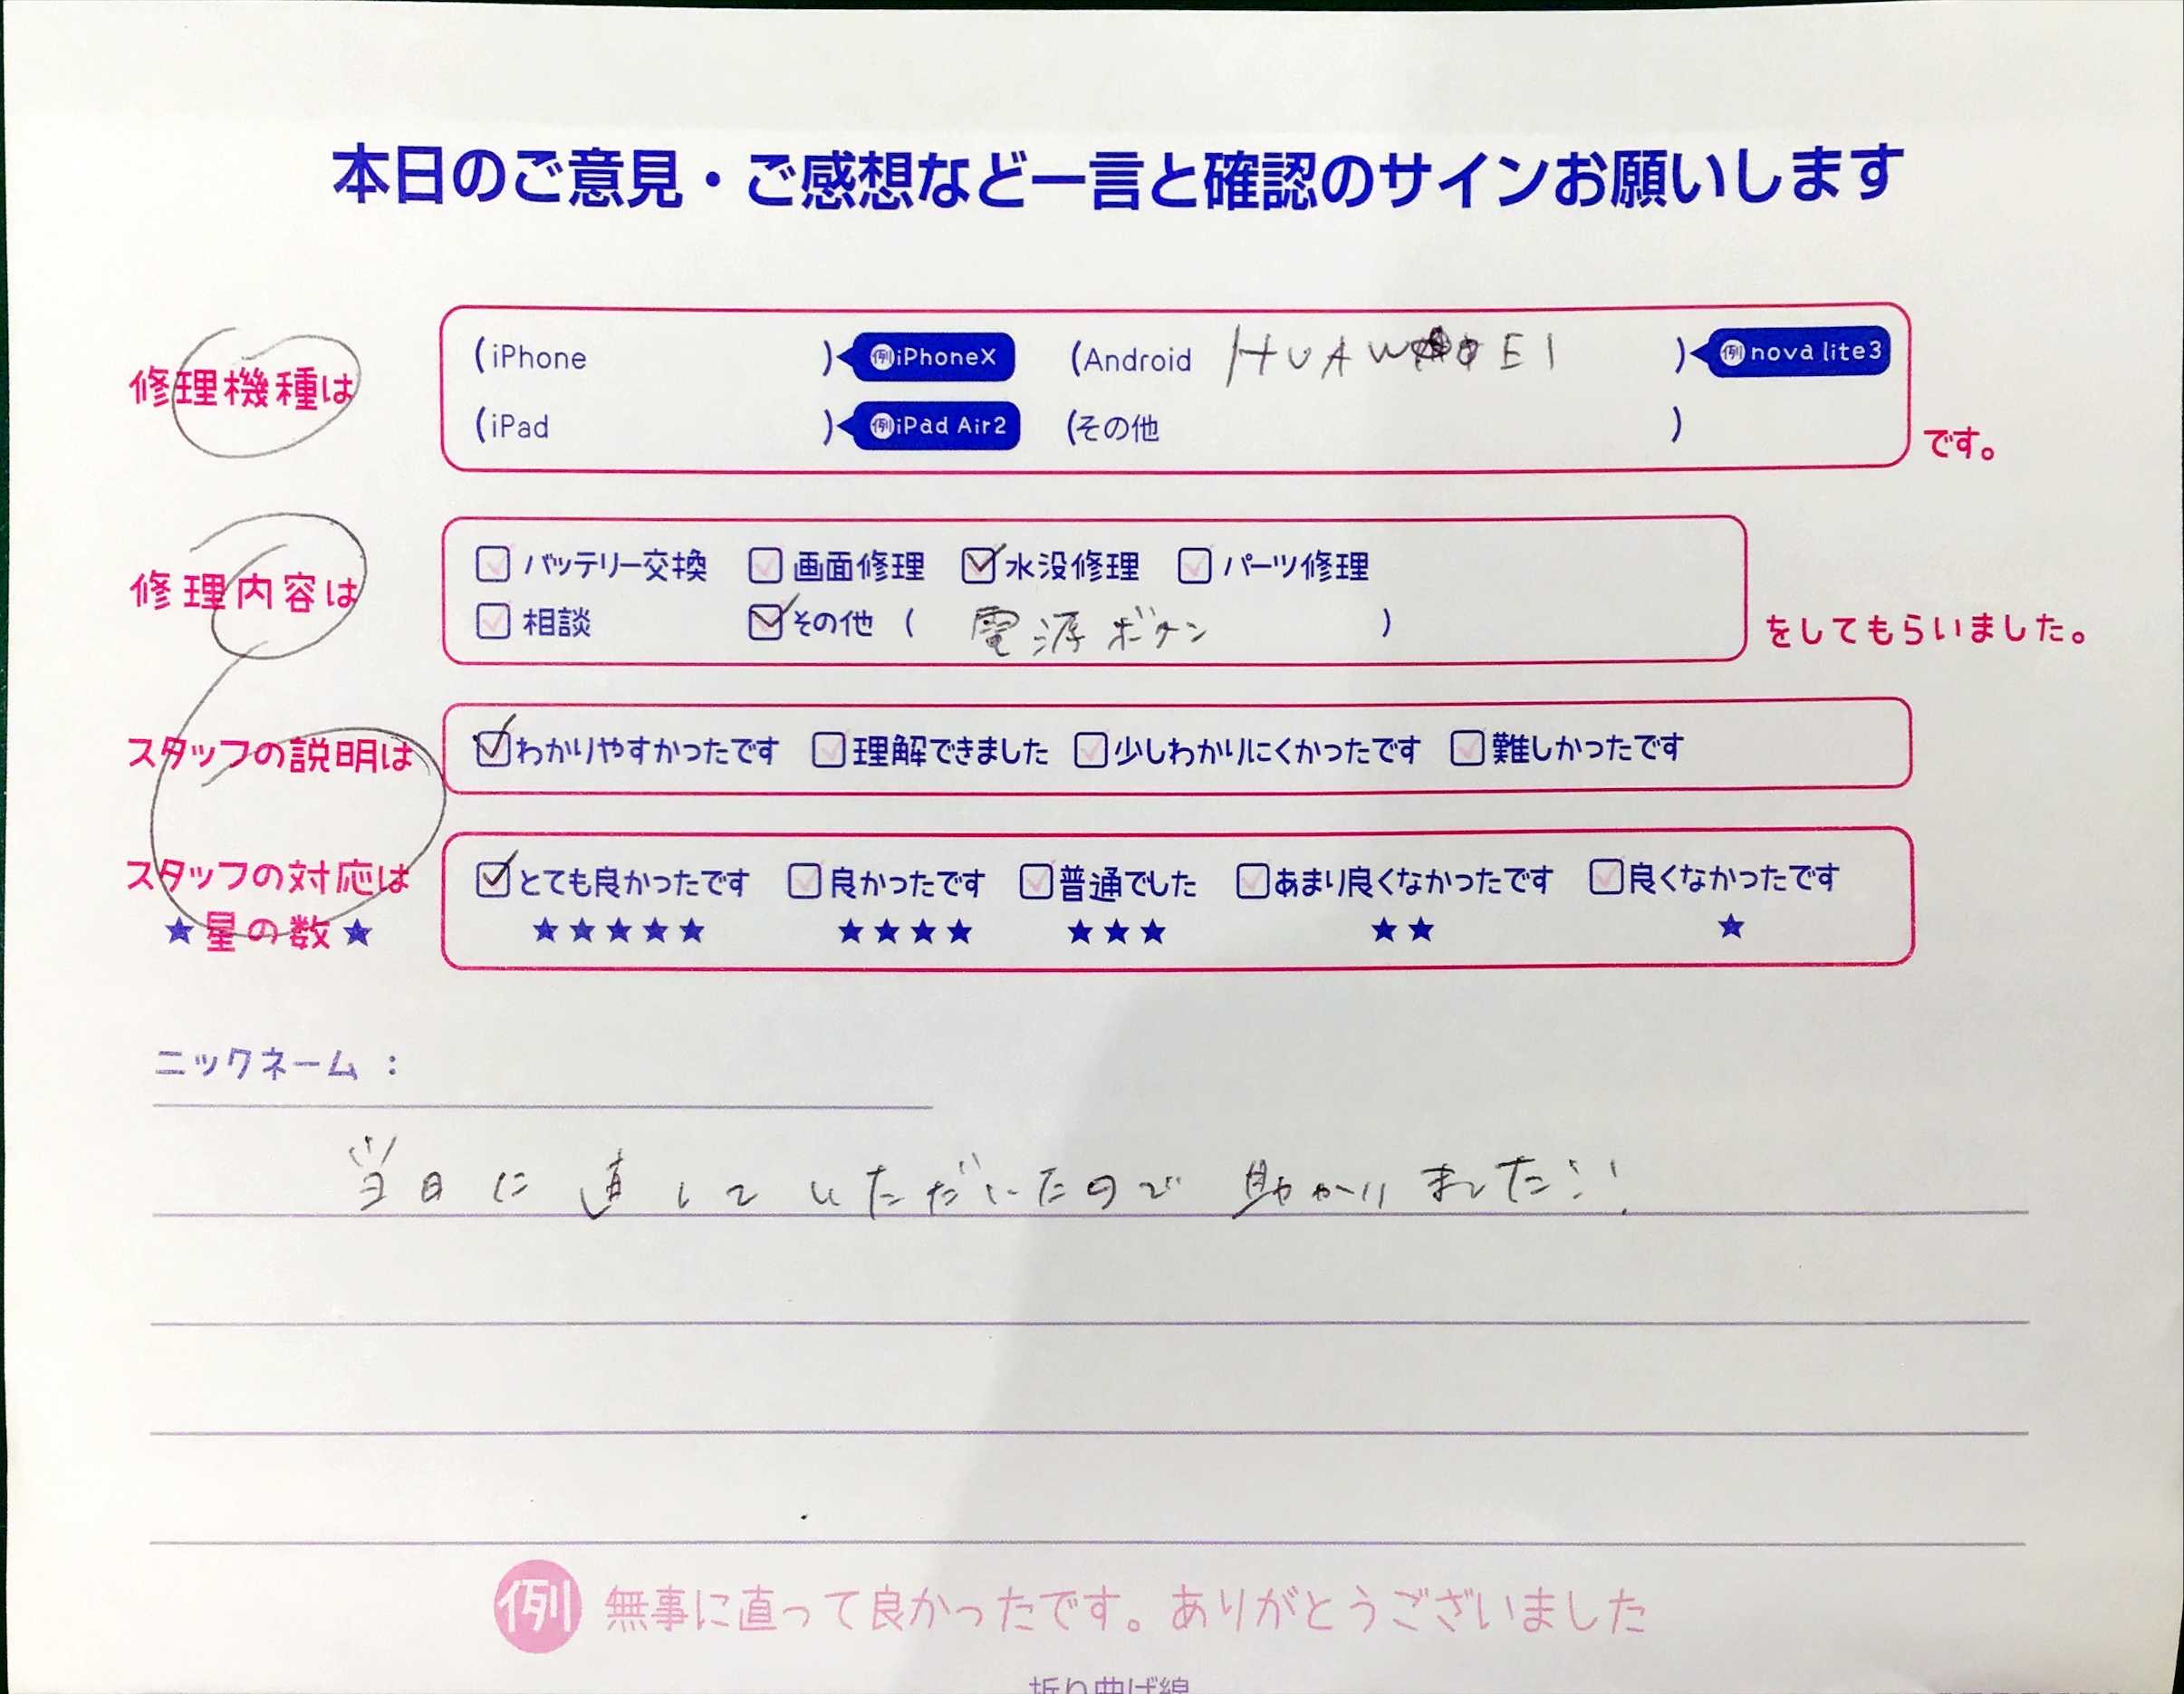 本日のご意見・ご感想など一言と確認のサインお願いします
修理機種は (iPhone ) 例iPhoneX (Android HUAWEI ) 例nova lite3
(iPad ) 例iPad Air2 (その他 ) です。
修理内容は バッテリー交換 画面修理 水没修理 パーツ修理
相談 その他 ( 電源ボタン ) をしてもらいました。
スタッフの説明は わかりやすかったです 理解できました 少しわかりにくかったです 難しかったです
スタッフの対応は とても良かったです 良かったです 普通でした あまり良くなかったです 良くなかったです
★星の数★ ★★★★★ ★★★★ ★★★ ★★ ★
ニックネーム :
当日に直していただいたので助かりました!!
例 無事に直って良かったです。ありがとうございました
折り曲げ線